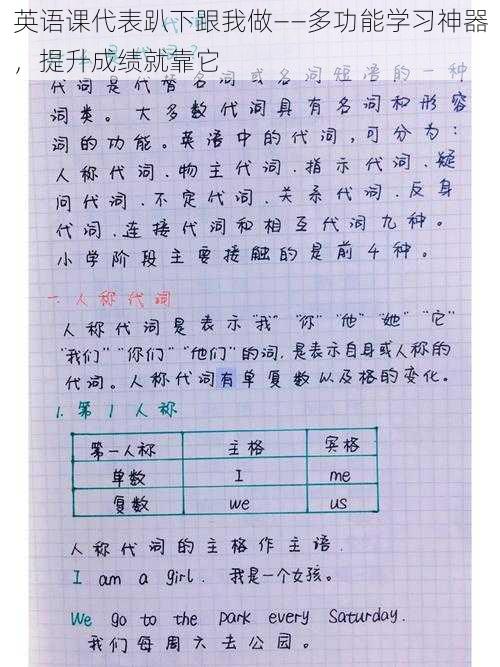 英语课代表趴下跟我做——多功能学习神器
，提升成绩就靠它
代词是代替名词或名词短语的一种
词类。大多数代词具有名词和形容
词的功能。英语中的代词,可分为:
人称代词.物主代词.指示代词.疑
问代词.不定代词.关系代词.反身
代词.连接代词和相互代词九种。
小学阶段主要接触的是前4种。
一.人称代词
人称代词是表示"我""你""他""她""它"
"我们""你们""他们"的词,是表示自身或人称的
代词。人称代词有单复数以及格的变化。
1.第1人称
第一人称 主格 宾格
单数 I me
复数 we us
人称代词的主格作主语.
I am a girl. 我是一个女孩。
We go to the park every Saturday.
我们每周六去公园。